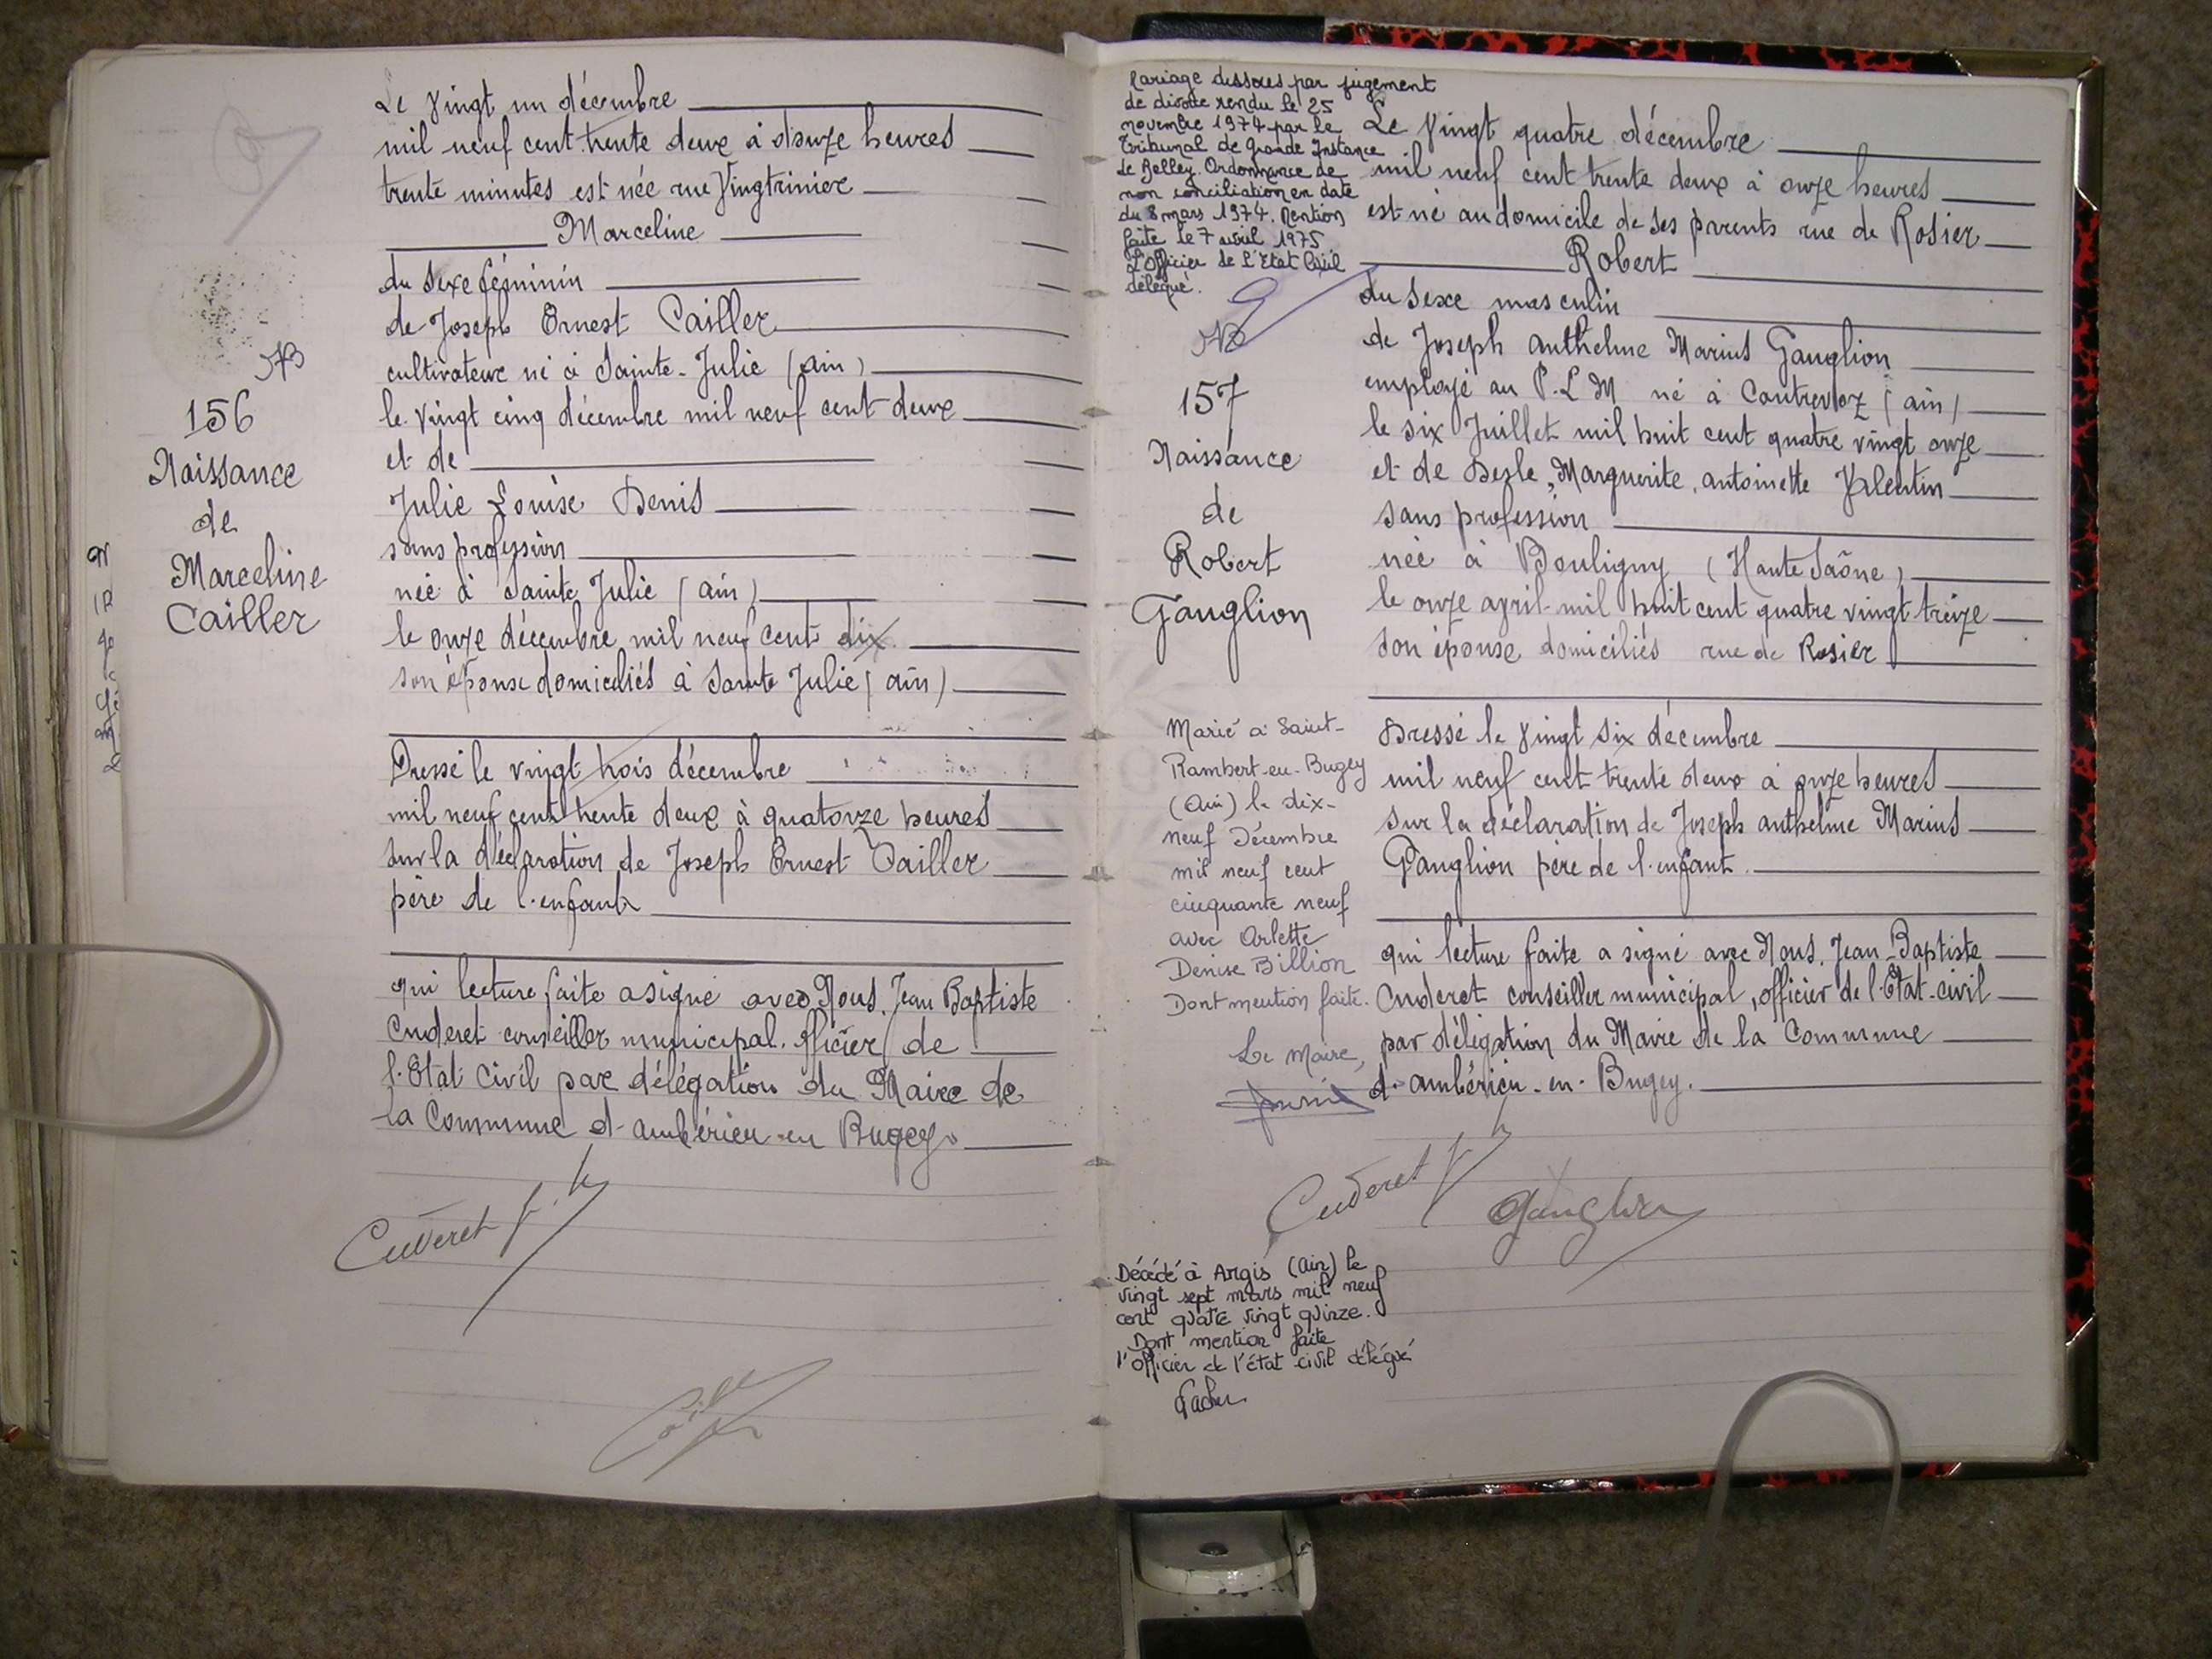 Le vingt un décembre
mil neuf cent trente deux à douze heures
trente minutes est née rue Vingtrinier
Marceline
du sexe féminin
de Joseph Ernest Cailler
cultivateur né à Sainte-Julie (ain)
le vingt cinq décembre mil neuf cent deux
et de
Julie Louise Denis
sans profession
née à Sainte Julie (ain)
le onze décembre mil neuf cent dix
son épouse domiciliés à Sainte Julie (ain)
Dressé le vingt trois décembre
mil neuf cent trente deux à quatorze heures
sur la déclaration de Joseph Ernest Cailler
père de l'enfant
qui lecture faite a signé avec Nous, Jean Baptiste
Cuderet conseiller municipal, officier de
l'Etat Civil par délégation du Maire de
la Commune d'ambérieu-en Bugey.
Cuderet
156
Naissance
de
Marceline
Cailler
Mariage dissous par jugement
de divorce rendu le 25
novembre 1974 par le
Tribunal de Grande Instance
de Belley. Ordonnance de
non conciliation en date
du 8 mars 1974. Mention
faite le 7 avril 1975
L'Officier de L'Etat Civil
délégué.
157
Naissance
de
Robert
Ganglion
Le vingt quatre décembre
mil neuf cent trente deux à onze heures
est né au domicile de ses parents rue de Rosier
Robert
du sexe masculin
de Joseph anthelme Marius Ganglion
employé au P.L.M né à Contrevoz (ain)
le six Juillet mil huit cent quatre vingt onze
et de Desle, Marguerite, antoinette Valentin
sans profession
née à Bouligny (Haute Saône)
le onze avril mil huit cent quatre vingt treize
son épouse domiciliés rue de Rosier
Dressé le vingt six décembre
mil neuf cent trente deux à onze heures
sur la déclaration de Joseph anthelme Marius
Ganglion père de l'enfant.
qui lecture faite a signé avec Nous, Jean-Baptiste
Cuderet conseiller municipal, officier de l'Etat-civil
par délégation du Maire de la Commune
d'ambérieu-en-Bugey.
Cuderet
Ganglion
Marié à Saint-
Rambert-en-Bugey
(Ain) le dix-
neuf Décembre
mil neuf cent
cinquante neuf
avec Arlette
Denise Billion
Dont mention faite.
Le Maire,
Décédé à Argis (Ain) le
vingt sept mars mil neuf
cent quatre vingt quinze.
Dont mention faite
l'officier de l'état civil délégué